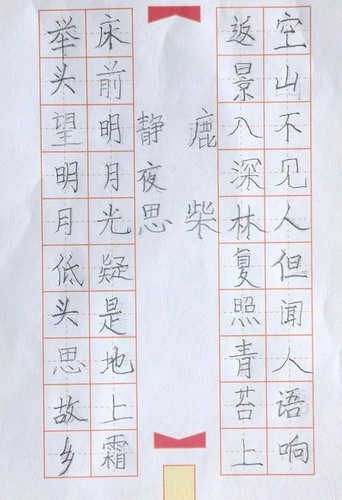 空山不见人但闻人语响
返景入深林复照青苔上
鹿柴
静夜思
床前明月光疑是地上霜
举头望明月低头思故乡